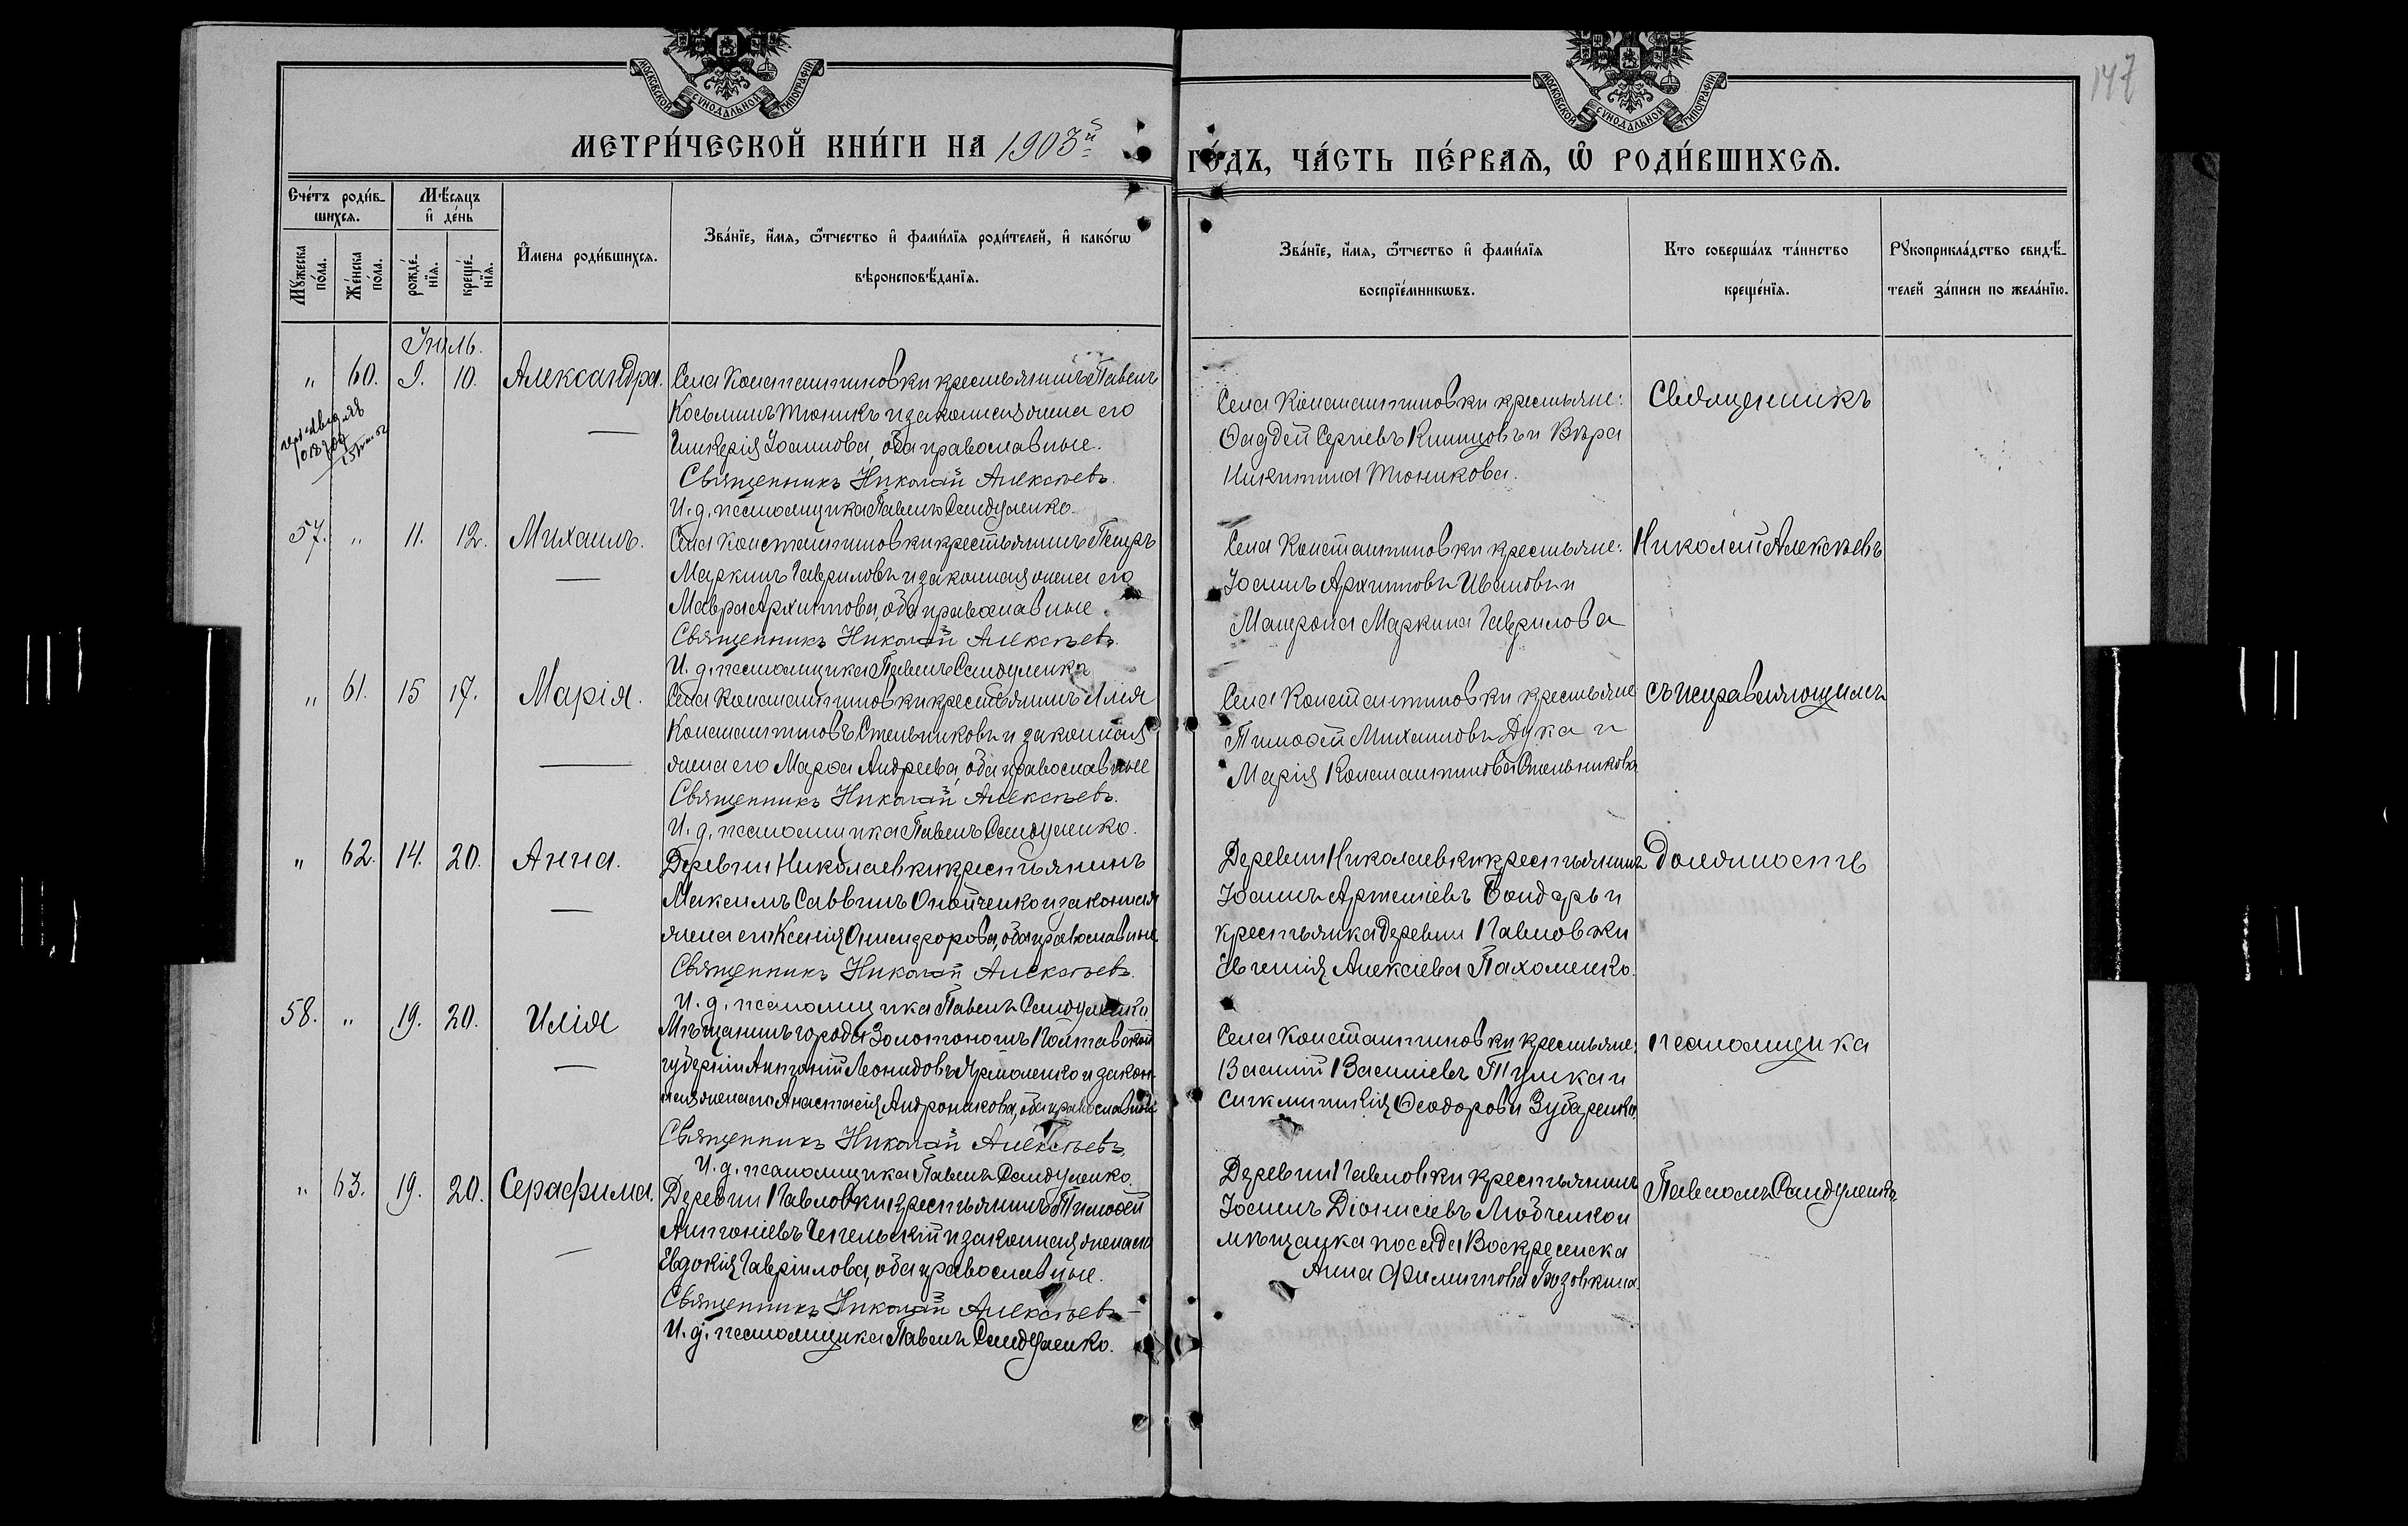 МОСКОВСКОЙ СѴНОДАЛЬНОЙ ТИПОГРАФІИ
МОСКОВСКОЙ СѴНОДАЛЬНОЙ ТИПОГРАФІИ
147
МЕТРИ́ЧЕСКОЙ КНИ́ГИ НА 1903й
ГО́ДЪ, ЧА́СТЬ ПЕ́РВАѦ, Ѡ҆ РОДИ́ВШИХСѦ.
Сче́тъ роди́в-
шихсѧ.
Мѣ́сѧцъ
и҆ де́нь
Мꙋ́жеска
по́ла.
Же́нска
по́ла.
рожде́-
нїѧ.
креще́-
нїѧ.
И҆мена роди́вшихсѧ.
Зва́нїе, и҆́мѧ, ѻ҆́тчество и҆ фами́лїѧ роди́телей, и҆ како́гѡ
вѣроисповѣ́данїѧ.
Зва́нїе, и҆́мѧ, ѻ҆́тчество и҆ фами́лїѧ
воспрїе́мникѡвъ.
Кто соверша́лъ та́инство
креще́нїѧ.
Рꙋкоприкла́дство свидѣ́-
телей за́писи по жела́нїю.
Іюль.
" 60. 9. 10. Александра.
Села Константиновки крестьянинъ Павелъ
Косьминъ Тюникъ и законная жена его
Гликерія Іоаннова, оба православные.
Священникъ Николай Алексѣевъ.
И. д. псаломщика Павелъ Сандуленко.
Села Константиновки крестьяне:
Ѳаддей Сергіевъ и Вѣра
Никитина Тюникова.
57. " 11. 12. Михаилъ.
Села Константиновки крестьянинъ Петръ
Маркинъ Гавриловъ и законная жена его
Мавра Архипова, оба православные.
Священникъ Николай Алексѣевъ.
И. д. псаломщика Павелъ Сандуленко
Села Константиновки крестьяне:
Іоаннъ Архиповъ Ивановъ и
Матрона Маркина Гаврилова
" 61. 15 17. Марія.
Села Константиновки крестьянинъ Илія
Константиновъ Стельниковъ и законная
жена его Марѳа Андреева, оба православные
Священникъ Николай Алексѣевъ.
И. д. псаломщика Павелъ Сандуленко.
Села Константиновки крестьяне
Тимоѳей Михаиловъ Дука и
Марія Константинова Стельникова
" 62. 14. 20. Анна.
Деревни Николаевки крестьянинъ
Максимъ Саввинъ Онойченко и законная
жена его Ксенія Онисифорова, оба православные
Священникъ Николай Алексѣевъ.
И. д. псаломщика Павелъ Сандуленко.
Деревни Николаевки крестьянинъ
Іоаннъ Артеміевъ Бондарь и
крестьянка деревни Павловки
Евгенія Алексіева Пахоменко.
58. " 19. 20. Илія
Мѣщанинъ города Золотоношъ Полтавской
губерніи Антоній Леонидовъ Ярмоленко и закон-
ная жена его Анастасія Андроникова, оба православные
Священникъ Николай Алексѣевъ.
И. д. псаломщика Павелъ Сандуленко.
Села Константиновки крестьяне:
Василій Василіевъ и
Ѳеодорова Зубаренко.
" 63. 19. 20. Серафима.
Деревни Павловки крестьянинъ Тимоѳей
Антоніевъ Чепельскій и законная жена его
Евдокія Гавріилова, оба православные.
Священникъ Николай Алексѣевъ
И. д. псаломщика Павелъ Сандуленко.
Деревни Павловки крестьянинъ
Іоаннъ Діонисіевъ Любченко и
мѣщанка посада Воскресенска
Анна Филиппова
Священникъ
Николай Алексѣевъ
съ исправляющимъ
должность
псаломщика
Павломъ Сандуленко